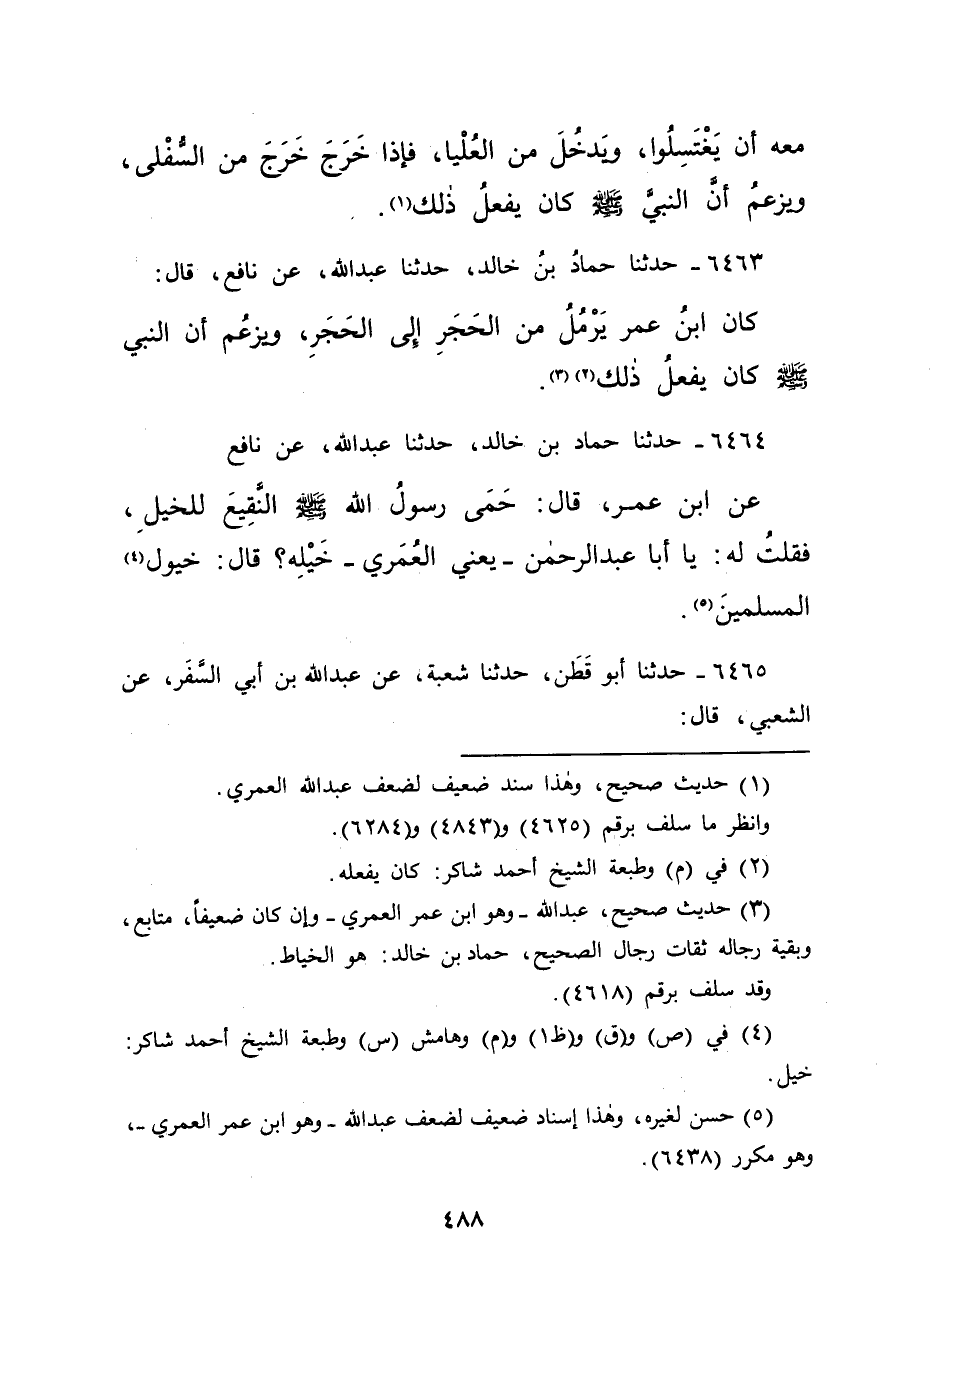 معه أن يَغْتَسِلُوا، ويَدخُلَ من العُلْيا، فإذا خَرَجَ خَرَجَ من السُّفْلى،
ويزعمُ أنَّ النبيَّ ﷺ كان يفعلُ ذٰلك(١).
٦٤٦٣ـ حدثنا حمادُ بنُ خالد، حدثنا عبدالله، عن نافع، قال:
كان ابنُ عمر يَرْمُلُ من الحَجَرِ إِلى الحَجَرِ، ويزعُم أن النبي
ﷺ كان يفعلُ ذٰلك(٢)(٣).
٦٤٦٤ـ حدثنا حماد بن خالد، حدثنا عبدالله، عن نافع
عن ابن عمـر، قال: حَمَى رسولُ الله ﷺ النَّقِيعَ للخيلِ،
فقلتُ له: يا أبا عبدالرحمٰن ـ يعني العُمَري ـ خَيْلِه؟ قال: خيول(٤)
المسلمينَ(٥).
٦٤٦٥ـ حدثنا أبو قَطَن، حدثنا شعبة، عن عبدالله بن أبي السَّفَر، عن
الشعبي، قال:
(١) حديث صحيح، وهٰذا سند ضعيف لضعف عبدالله العمري.
وانظر ما سلف برقم (٤٦٢٥) و(٤٨٤٣) و(٦٢٨٤).
(٢) في (م) وطبعة الشيخ أحمد شاكر: كان يفعله.
(٣) حديث صحيح، عبدالله ـ وهو ابن عمر العمري ـ وإن كان ضعيفاً، متابع،
وبقية رجاله ثقات رجال الصحيح، حماد بن خالد: هو الخياط.
وقد سلف برقم (٤٦١٨).
(٤) في (ص) و(ق) و(ظ١) و(م) وهامش (س) وطبعة الشيخ أحمد شاكر:
خيل.
(٥) حسن لغيره، وهٰذا إسناد ضعيف لضعف عبدالله ـ وهو ابن عمر العمري ـ،
وهو مكرر (٦٤٣٨).
٤٨٨